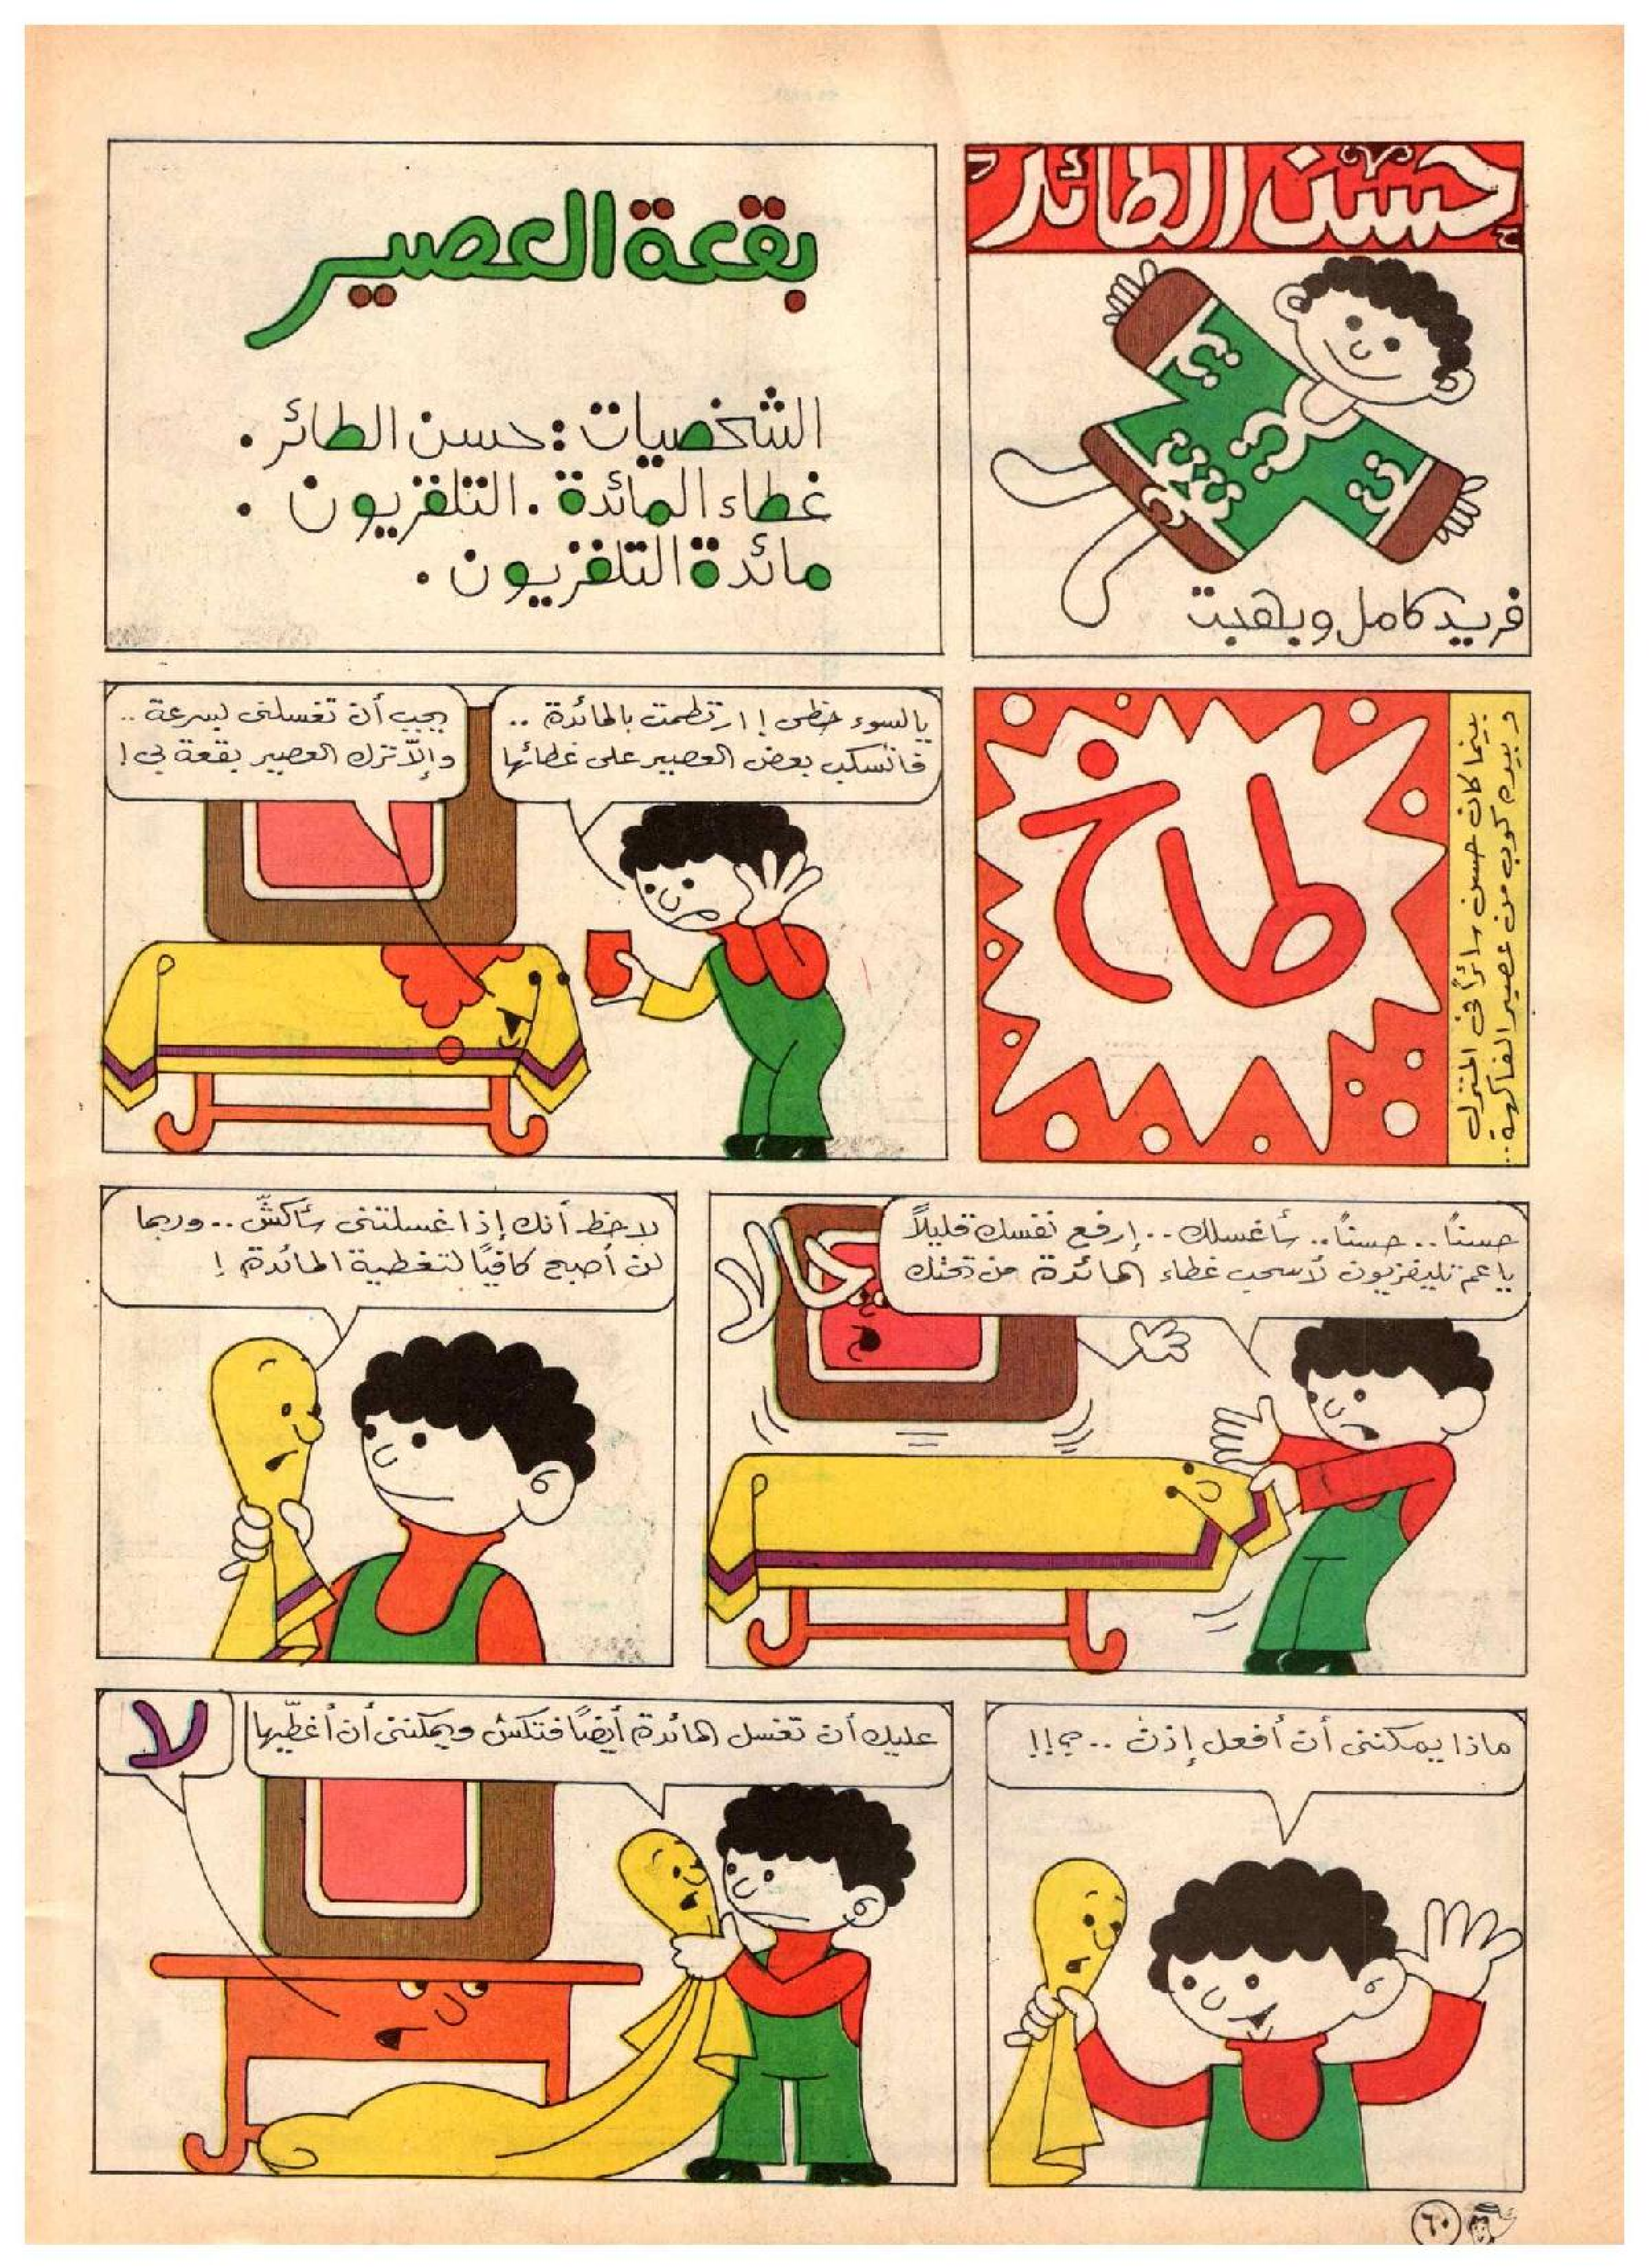 حسن الطائر
فريد كامل وبهجت
بقعة العصير
الشخصيات: حسن الطائر.
غطاء المائدة. التلفزيون.
مائدة التلفزيون.
بينما كان حسن سائراً في المنزل
وبيده كوب من عصير الفاكهة..
طاخ
يا لسوء حظى! ارتطمت بالمائدة..
فانسكب بعض العصير على غطائها
يجب أن تغسلنى بسرعة..
وإلّا ترك العصير بقعة بي!
حسناً.. حسناً.. سأغسلك.. إرفع نفسك قليلاً
يا عم تليفزيون لأسحب غطاء المائدة من تحتك
لاحظ أنك إذا غسلتنى سأكشّ.. وربما
لن أصبح كافياً لتغطية المائدة!
ماذا يمكننى أن أفعل إذن.. هي!!
عليك أن تغسل المائدة أيضاً فتكش ويمكننى أن أغطّيها
لا
٦٠